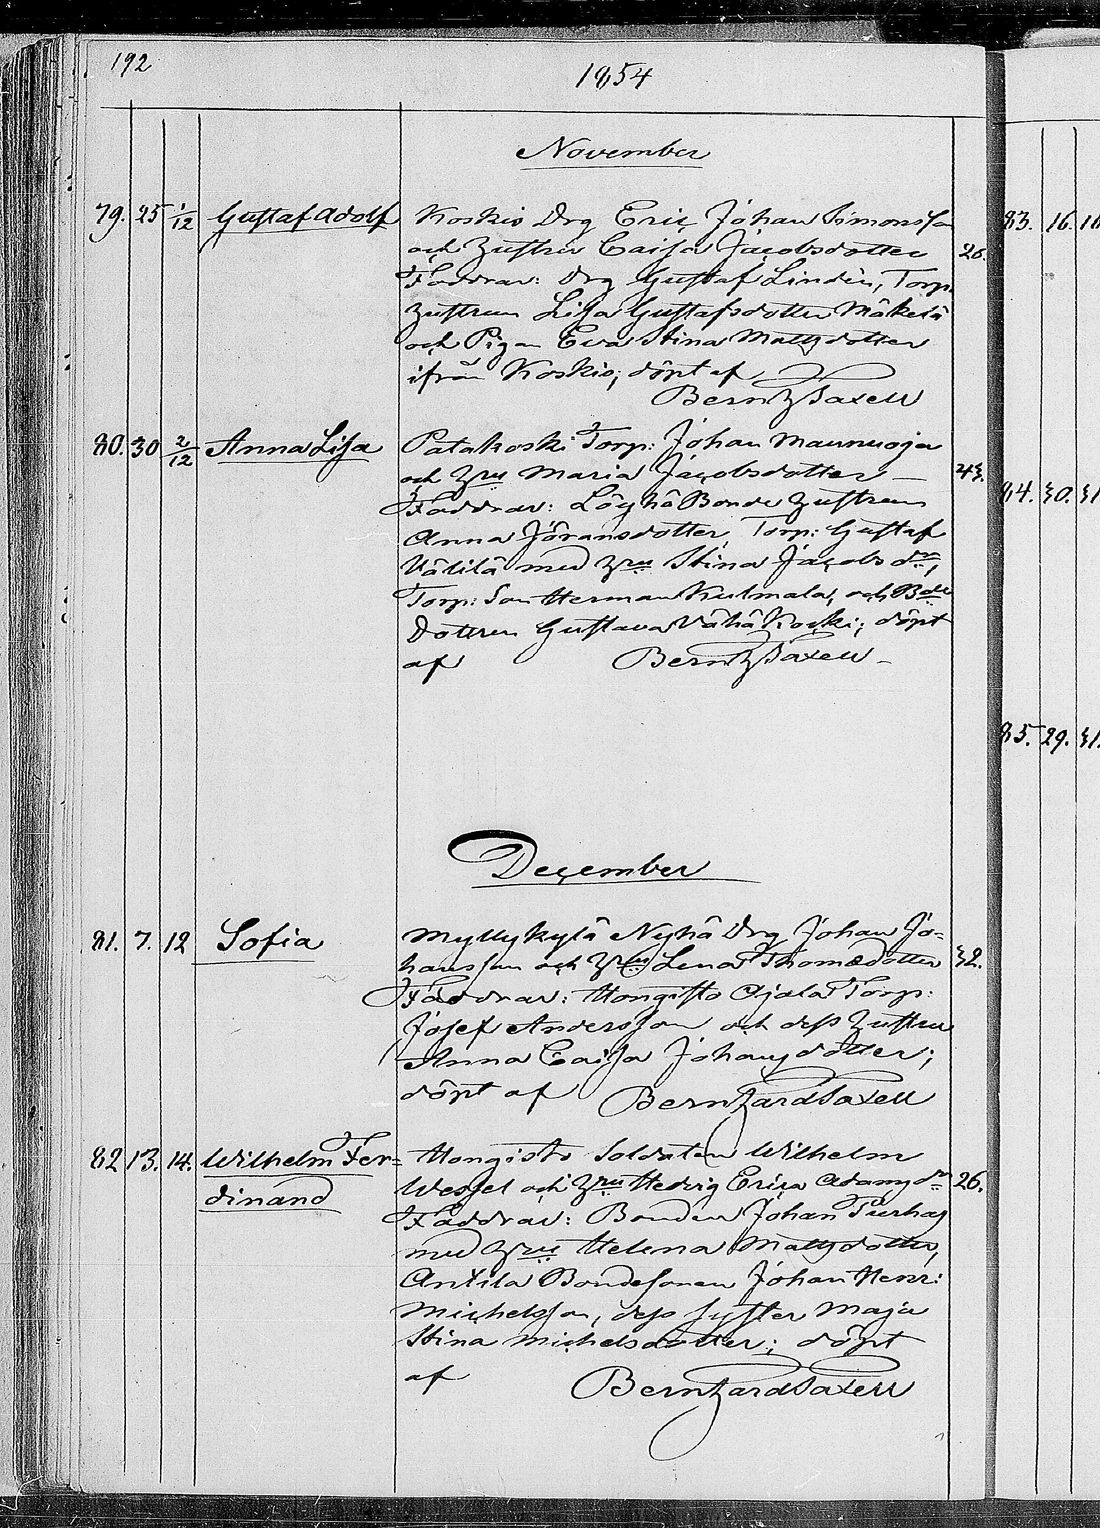 192
1854
November
79. 25 1/12 Gustaf Adolf Koskis Drg Eric Johan Simonsson
och Hustru Caisa Jacobsdotter 26.
Faddrar: Drg Gustaf Lindén, Torp.
Hustrun Lisa Gustafsdotter Mäkelä
och Pigan Eva Stina Mattsdotter
ifrån Koskis; döpt af
Bernh Saxell
80. 30 2/12 Anna Lisa Patakoski Torp: Johan Maunuoja
och Hru Maria Jacobsdotter 43.
Faddrar: Löyhä Bonde Hustrun
Anna Jöransdotter, Torp: Gustaf
Välilä med Hru Stina Jacobsdr,
Torp: Son Herman Kulmala, och Bde
Dottren Gustava Vähä Koski; döpt
af Bernh Saxell
December
81. 7. 12 Sofia Myllykylä Nyhä Drg Johan Jo-
hansson och Hru Lena Thomædotter 32.
Faddrar: Hongisto Ojala Torp:
Josef Andersson och dess Hustru
Anna Caisa Johansdotter;
döpt af Bernhard Saxell
82 13. 14. Wilhelm Fer- Hongisto Soldaten Wilhelm
dinand Wessel och Hru Hedvig Erica Adamsdr 26.
Faddrar: Bonden Johan Pierhas
med Hru Helena Mattsdotter,
Anttila Bondesonen Johan Henr:
Michelsson, dess syster Maja
Stina Michelsdotter; döpt
af Bernhard Saxell
83. 16. 16
84. 30. 31
85. 29. 31.